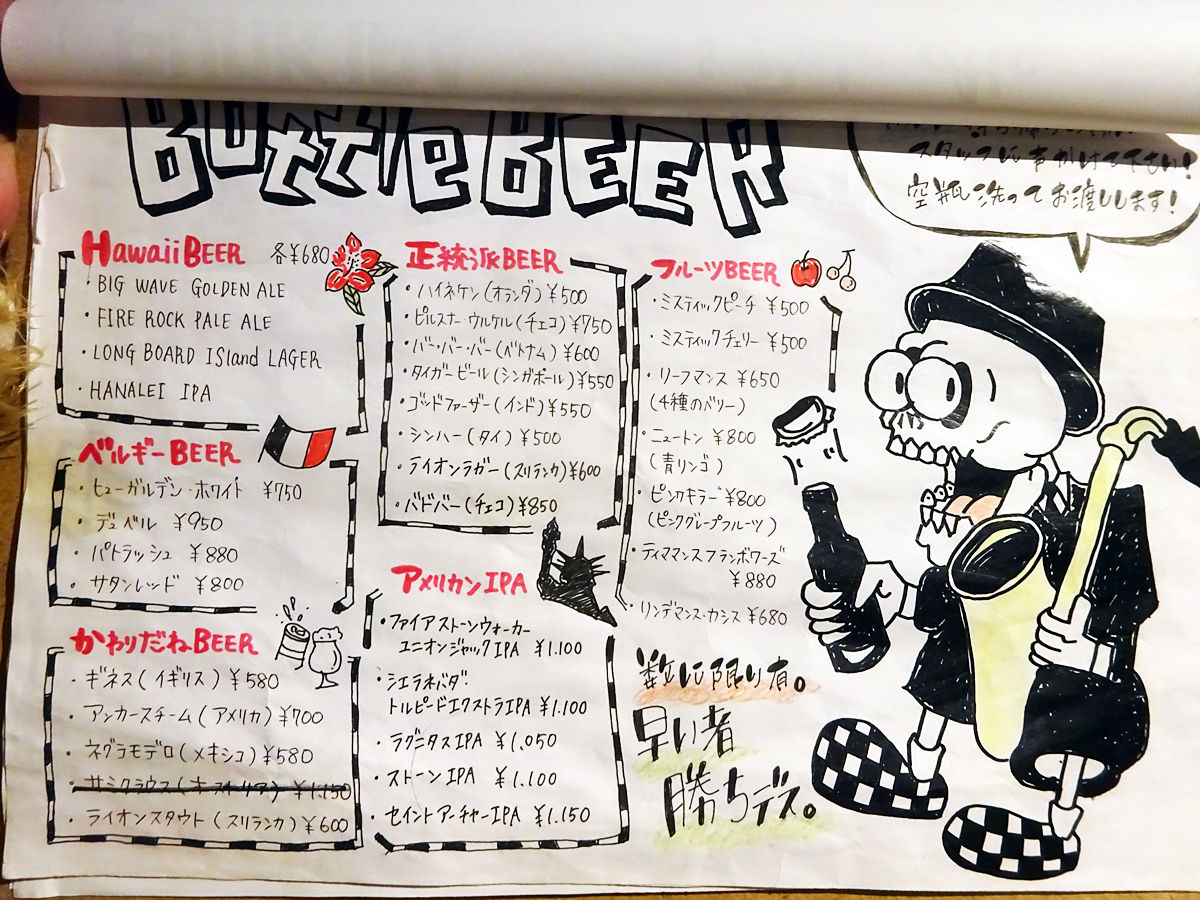 Bottle BEER
スタッフに声かけて下さい!
空瓶洗ってお渡しします!
Hawaii BEER 各¥680
・BIG WAVE GOLDEN ALE
・FIRE ROCK PALE ALE
・LONG BOARD ISland LAGER
・HANALEI IPA
ベルギーBEER
・ヒューガルデン・ホワイト ¥750
・デュベル ¥950
・パトラッシュ ¥880
・サタンレッド ¥800
かわりだねBEER
・ギネス(イギリス)¥580
・アンカースチーム(アメリカ)¥700
・ネグラモデロ(メキシコ)¥580
・サミクラウス(オーストリア)¥1.150
・ライオンスタウト(スリランカ)¥600
正統派BEER
・ハイネケン(オランダ)¥500
・ピルスナー・ウルケル(チェコ)¥750
・バー・バー・バー(ベトナム)¥600
・タイガービール(シンガポール)¥550
・ゴッドファーザー(インド)¥550
・シンハー(タイ)¥500
・ライオンラガー(スリランカ)¥600
・バドバー(チェコ)¥850
アメリカンIPA
・ファイアストーンウォーカー
ユニオンジャックIPA ¥1.100
・シエラネバダ・
トルピードエクストラIPA ¥1.100
・ラグニタスIPA ¥1.050
・ストーンIPA ¥1.100
・セイントアーチャーIPA ¥1.150
フルーツBEER
・ミスティックピーチ ¥500
・ミスティックチェリー ¥500
・リーフマンス ¥650
(4種のベリー)
・ニュートン ¥800
(青リンゴ)
・ピンクキラー ¥800
(ピンクグレープフルーツ)
・ティママンスフランボワーズ
¥880
・リンデマンス・カシス ¥680
数に限り有。
早い者
勝ちデス。